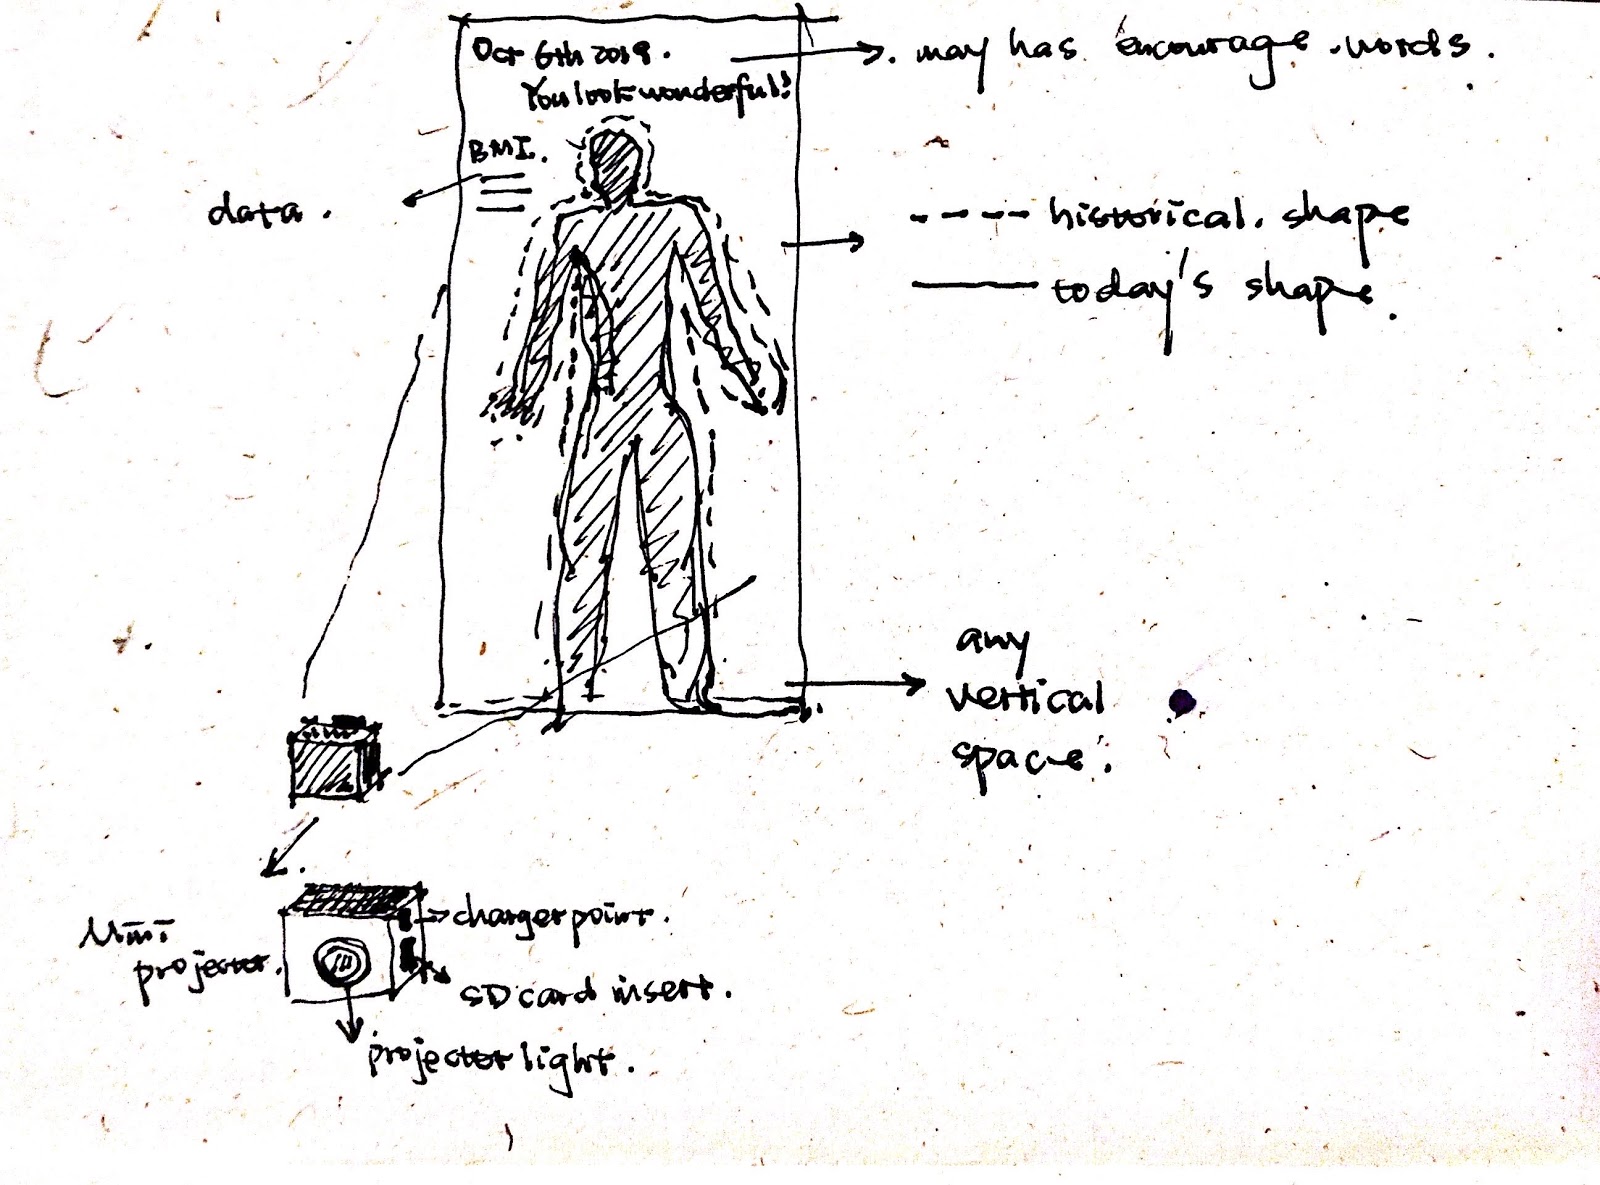 Oct 6th 2019.
You look wonderful!
may has encourage words.
BMI.
data.
historical shape
today's shape.
any
vertical
space.
Mini
projector.
charger point.
SD card insert.
projector light.